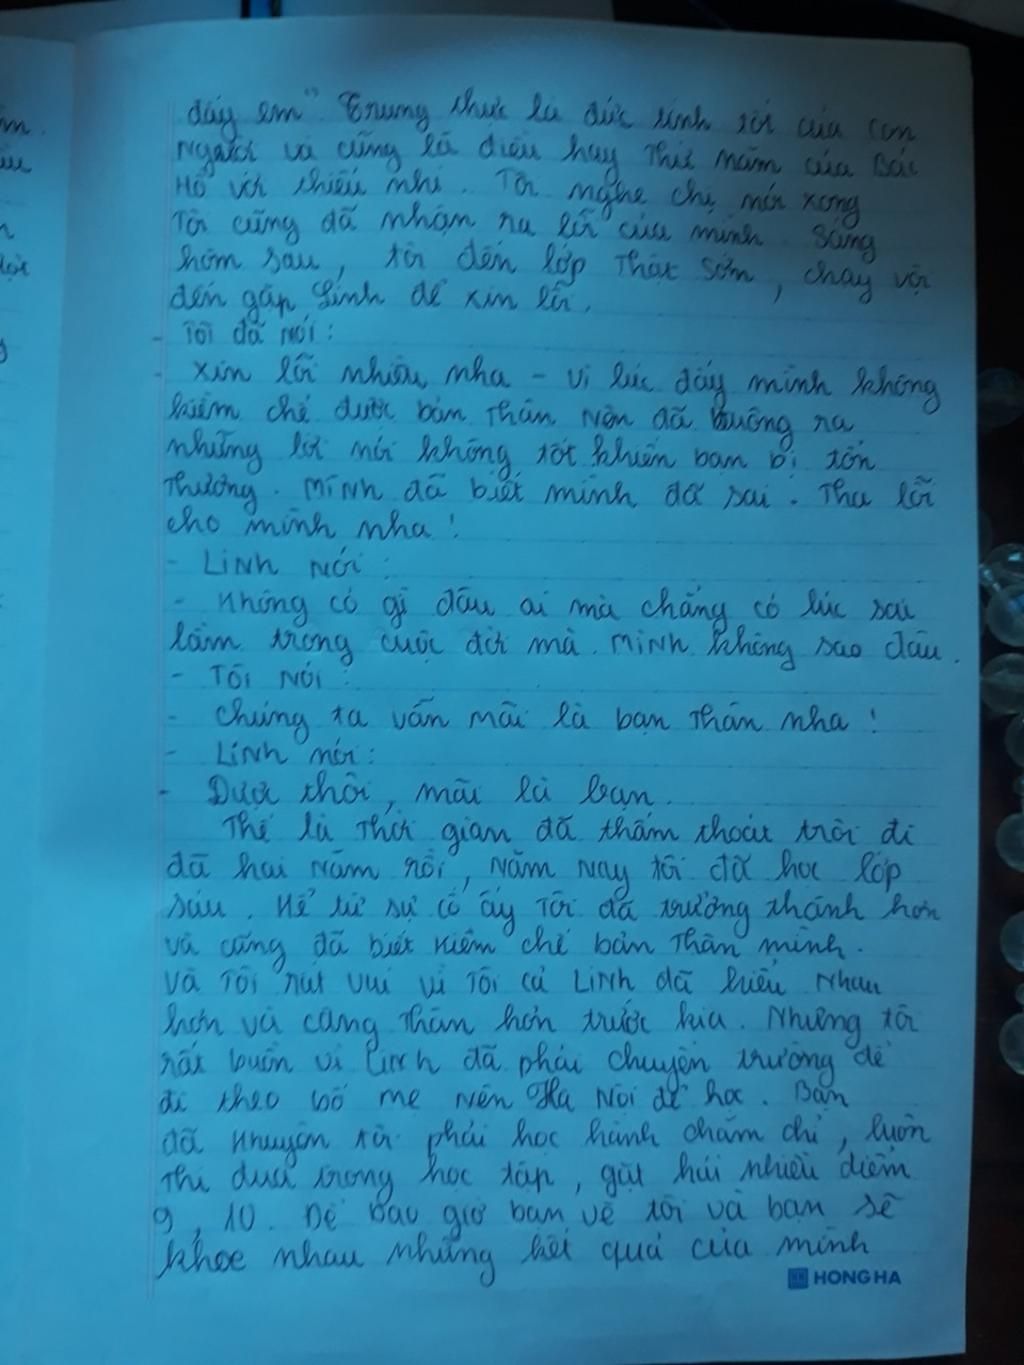 đấy em" Trung thực là đức tính tốt của con
người và cũng là điều hay thứ năm của Bác
Hồ với thiếu nhi. Tôi nghe chị nói xong
Tôi cũng đã nhận ra lỗi của mình. Sáng
hôm sau, tôi đến lớp thật sớm, chạy vội
đến gặp Linh để xin lỗi.
- Tôi đã nói:
- Xin lỗi nhiều nha - vì lúc đấy mình không
kiềm chế được bản thân nên đã buông ra
những lời nói không tốt khiến bạn bị tổn
thương. Mình đã biết mình đã sai. Tha lỗi
cho mình nha!
- Linh nói:
- Không có gì đâu ai mà chẳng có lúc sai
lầm trong cuộc đời mà. Mình không sao đâu.
- Tôi nói:
- Chúng ta vẫn mãi là bạn thân nha!
- Linh nói:
- Được thôi, mãi là bạn.
Thế là thời gian đã thấm thoát trôi đi
đã hai năm rồi, năm nay tôi đã học lớp
sáu. Kể từ sự cố ấy tôi đã trưởng thành hơn
và càng đã biết kiềm chế bản thân mình.
Và tôi rất vui vì tôi cả Linh đã hiểu nhau
hơn và càng thân hơn trước kia. Nhưng tôi
rất buồn vì Linh đã phải chuyển trường để
đi theo bố mẹ nên Hà Nội để học. Bạn
đã khuyên tôi phải học hành chăm chỉ, luôn
thi đua trong học tập, gặt hái nhiều điểm
9, 10. Để bao giờ bạn về tôi và bạn sẽ
khoe nhau những kết quả của mình
HONG HA